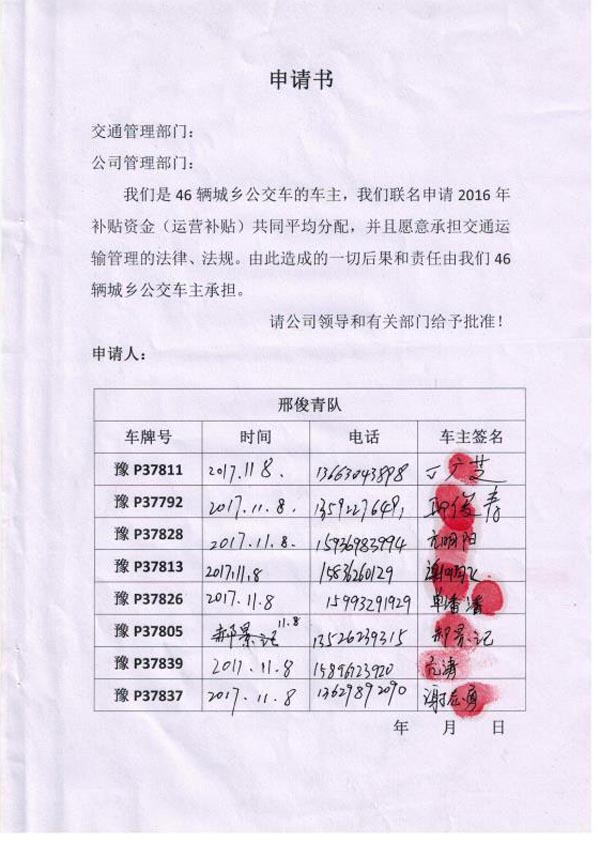 申请书
交通管理部门：
公司管理部门：
我们是 46 辆城乡公交车的车主，我们联名申请 2016 年
补贴资金（运营补贴）共同平均分配，并且愿意承担交通运
输管理的法律、法规。由此造成的一切后果和责任由我们 46
辆城乡公交车主承担。
请公司领导和有关部门给予批准！
申请人：
邢俊青队
车牌号 时间 电话 车主签名
豫 P37811 2017.11 8. 13663043898 丁广芝
豫 P37792 2017.11.8. 1359227648,
豫 P37828 2017.11.8. 15936983994 亢明阳
豫 P37813 2017.11.8 15836260129
豫 P37826 2017.11.8 15993291929 单香清
豫 P37805 郝景记 11.8 13526239315 郝景记
豫 P37839 2017.11.8 15896723920 亢涛
豫 P37837 2017.11.8 13629892090
年 月 日